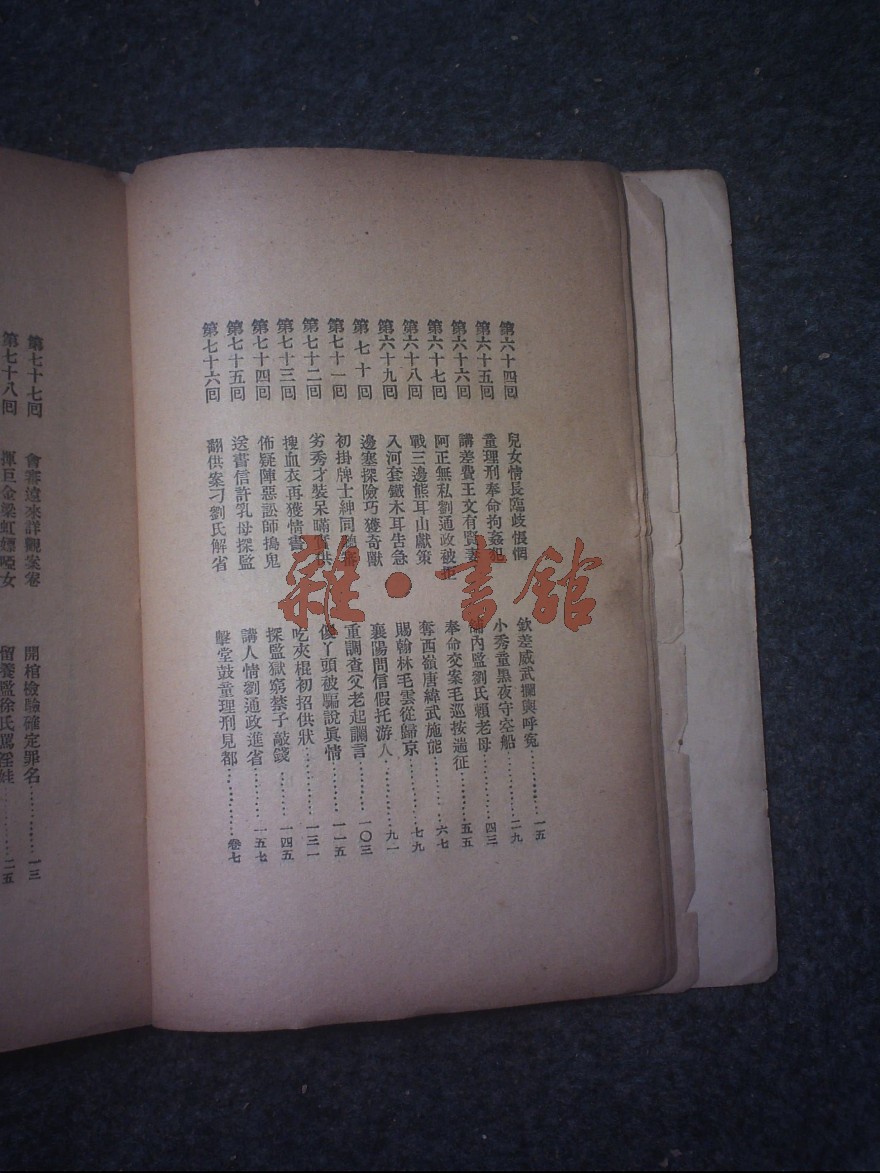 第六十四回 兒女情長臨歧悵惘 欽差威武攔輿呼寃 一五
第六十五回 童理刑奉命拘姦犯 小秀童黑夜守空船 二九
第六十六回 講差費王文有賢妻 內監劉氏賴老母 四三
第六十七回 阿正無私劉通政被 奉命交案毛巡按遄征 五五
第六十八回 戰三邊熊耳山獻策 奪西嶺唐緯武施能 六七
第六十九回 入河套鐵木耳告急 賜翰林毛雲從歸京 七九
第七十回 邊塞探險巧獲奇獸 襄陽問信假托游人 九一
第七十一回 初掛牌士紳同聽審 重調查父老起謠言 一〇三
第七十二回 劣秀才裝呆瞞實供 傻丫頭被騙說眞情 一一五
第七十三回 搜血衣再獲情書 吃夾棍初招供狀 一三一
第七十四回 佈疑陣惡訟師搗鬼 探監獄窮禁子敲錢 一四五
第七十五回 送書信許乳母探監 講人情劉通政進省 一五七
第七十六回 翻供案刁劉氏解省 擊堂鼓童理刑見都 卷七
第七十七回 會審遠來詳觀案卷 開棺檢驗確定罪名 一三
第七十八回 揮巨金梁虹縹啞女 留養監徐氏罵淫娃 二五
雜·書館